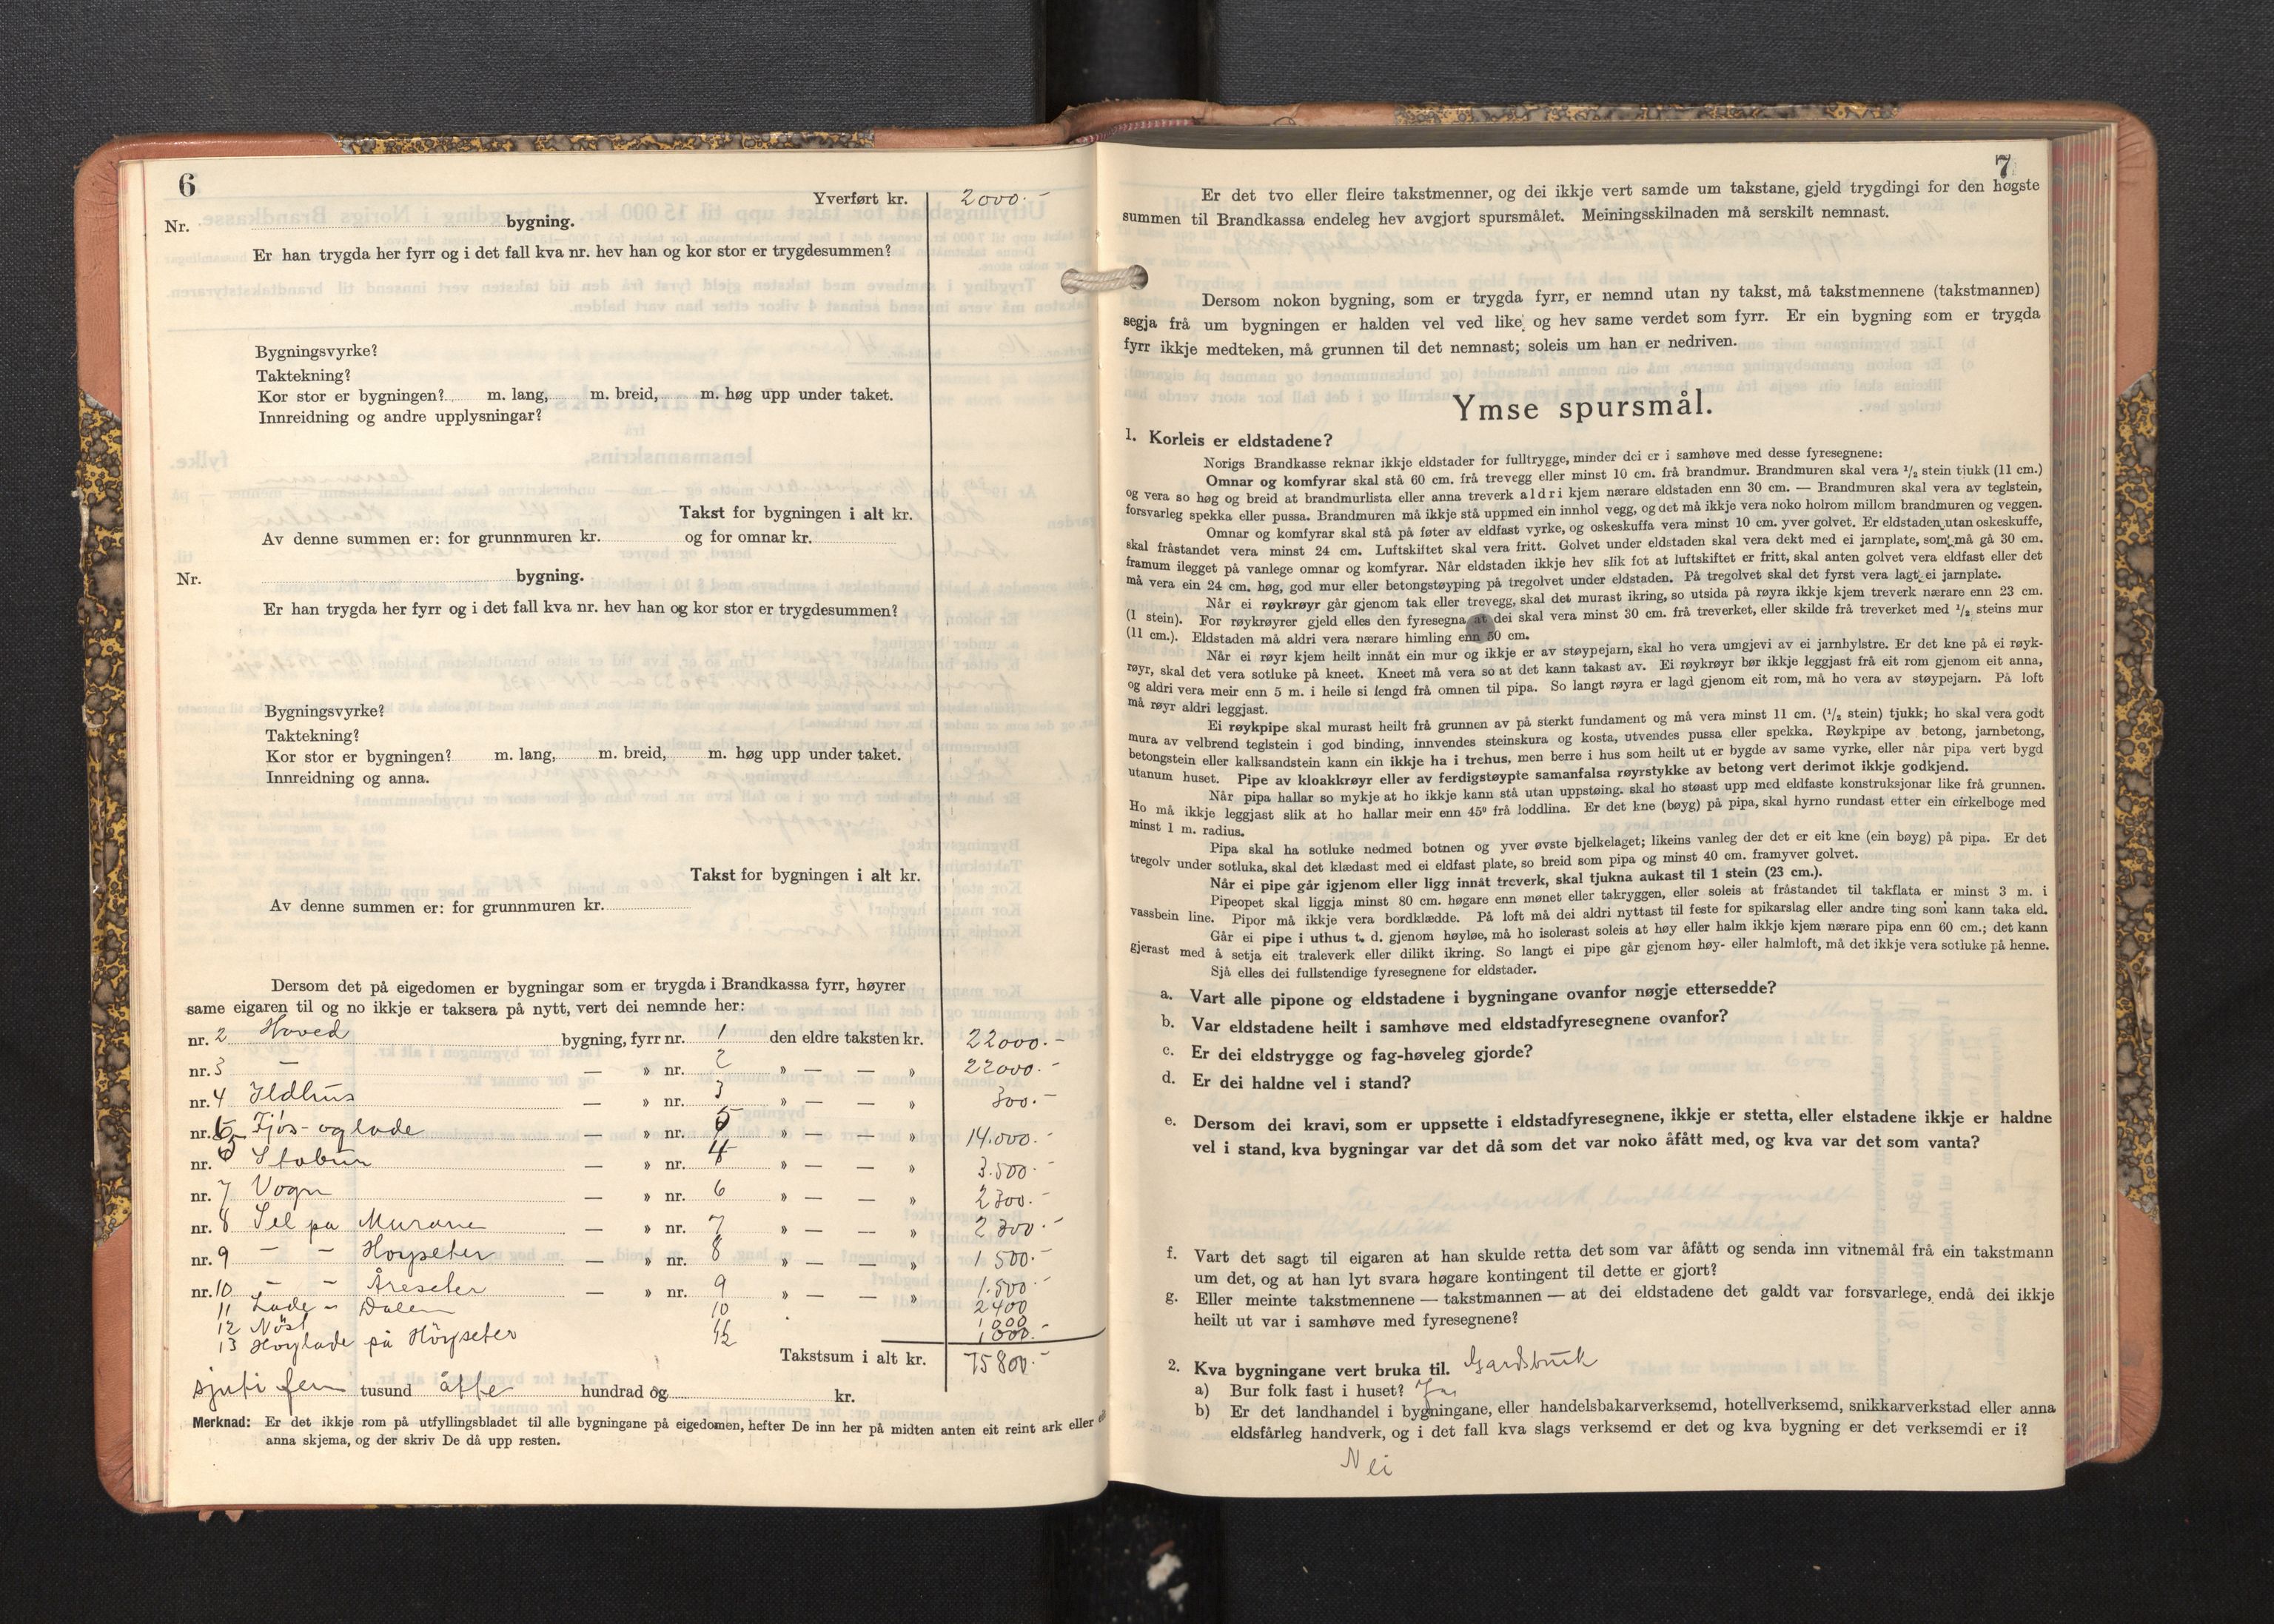 6
Yverført kr. 2000.-
Nr. bygning.
Er han trygda her fyrr og i det fall kva nr. hev han og kor stor er trygdesummen?
Bygningsvyrke?
Taktekning?
Kor stor er bygningen? m. lang, m. breid, m. høg upp under taket.
Innreidning og andre upplysningar?
Takst for bygningen i alt kr.
Av denne summen er: for grunnmuren kr. og for omnar kr.
Nr. bygning.
Er han trygda her fyrr og i det fall kva nr. hev han og kor stor er trygdesummen?
Bygningsvyrke?
Taktekning?
Kor stor er bygningen? m. lang, m. breid, m. høg upp under taket.
Innreidning og anna.
Takst for bygningen i alt kr.
Av denne summen er: for grunnmuren kr.
Dersom det på eigedomen er bygningar som er trygda i Brandkassa fyrr, høyrer
same eigaren til og no ikkje er taksera på nytt, vert dei nemnde her:
nr. 2 Hoved bygning, fyrr nr. 1 den eldre taksten kr. 22000.-
nr. 3 — — » nr. 2 » — — » 22000.-
nr. 4 Ildhus — » nr. 3 » — — » 300.-
nr. 5 Fjös- og lade — » nr. 5 » — — » 14.000.-
nr. 6 Stabur — » nr. 4 » — — » 3.500.-
nr. 7 Vogn — » nr. 6 » — — » 2300.-
nr. 8 Sel på Murane — » nr. 7 » — — » 2300.-
nr. 9 — — Horpseter — » nr. 8 » — — » 1500.-
nr. 10 — — Åreseter — » nr. 9 » — — » 1.500.-
11 Lade - Dalen 10 2400
12 Nöst 11 1000
13 Höylade på Hörpseter 12 1000.-
Takstsum i alt kr. 75800.-
sjuti fem tusund åtte hundrad og kr.
Merknad: Er det ikkje rom på utfyllingsbladet til alle bygningane på eigedomen, hefter De inn her på midten anten eit reint ark eller
anna skjema, og der skriv De då upp resten.
7
Er det tvo eller fleire takstmenner, og dei ikkje vert samde um takstane, gjeld trygdingi for den høgste
summen til Brandkassa endeleg hev avgjort spursmålet. Meiningsskilnaden må serskilt nemnast.
Dersom nokon bygning, som er trygda fyrr, er nemnd utan ny takst, må takstmennene (takstmannen)
segja frå um bygningen er halden vel ved like og hev same verdet som fyrr. Er ein bygning som er trygda
fyrr ikkje medteken, må grunnen til det nemnast; soleis um han er nedriven.
Ymse spursmål.
1. Korleis er eldstadene?
Norigs Brandkasse reknar ikkje eldstader for fulltrygge, minder dei er i samhøve med desse fyresegnene:
Omnar og komfyrar skal stå 60 cm. frå trevegg eller minst 10 cm. frå brandmur. Brandmuren skal vera 1/2 stein tjukk (11 cm.)
og vera so høg og breid at brandmurlista eller anna treverk aldri kjem nærare eldstaden enn 30 cm. — Brandmuren skal vera av teglstein,
forsvarleg spekka eller pussa. Brandmuren må ikkje stå uppmed ein innhol vegg, og det må ikkje vera noko holrom millom brandmuren og veggen.
Omnar og komfyrar skal stå på føter av eldfast vyrke, og oskeskuffa vera minst 10 cm. yver golvet. Er eldstaden utan oskeskuffe,
skal fråstandet vera minst 24 cm. Luftskiftet skal vera fritt. Golvet under eldstaden skal vera dekt med ei jarnplate, som må gå 30 cm.
framum ilegget på vanlege omnar og komfyrar. Når eldstaden ikkje hev slik fot at luftskiftet er fritt, skal anten golvet vera eldfast eller det
må vera ein 24 cm. høg, god mur eller betongstøyping på tregolvet under eldstaden. På tregolvet skal det fyrst vera lagt ei jarnplate.
Når ei røykrøyr går gjenom tak eller trevegg, skal det murast ikring, so utsida på røyra ikkje kjem treverk nærare enn 23 cm.
(1 stein). For røykrøyrer gjeld elles den fyresegna at dei skal vera minst 30 cm. frå treverket, eller skilde frå treverket med 1/2 steins mur
(11 cm.). Eldstaden må aldri vera nærare himling enn 50 cm.
Når ei røyr kjem heilt innåt ein mur og ikkje er av støypejarn, skal ho vera umgjevi av ei jarnhylstre. Er det kne på ei røyk-
røyr, skal det vera sotluke på kneet. Kneet må vera so at det kann takast av. Ei røykrøyr bør ikkje leggjast frå eit rom gjenom eit anna,
og aldri vera meir enn 5 m. i heile si lengd frå omnen til pipa. So langt røyra er lagd gjenom eit rom, må ho vera av støypejarn. På loft
må røyr aldri leggjast.
Ei røykpipe skal murast heilt frå grunnen av på sterkt fundament og må vera minst 11 cm. (1/2 stein) tjukk; ho skal vera godt
mura av velbrend teglstein i god binding, innvendes steinskura og kosta, utvendes pussa eller spekka. Røykpipe av betong, jarnbetong,
betongstein eller kalksandstein kann ein ikkje ha i trehus, men berre i hus som heilt ut er bygde av same vyrke, eller når pipa vert bygd
utanum huset. Pipe av kloakkrøyr eller av ferdigstøypte samanfalsa røyrstykke av betong vert derimot ikkje godkjend.
Når pipa hallar so mykje at ho ikkje kann stå utan uppstøing. skal ho støast upp med eldfaste konstruksjonar like frå grunnen.
Ho må ikkje leggjast slik at ho hallar meir enn 45º frå loddlina. Er det kne (bøyg) på pipa, skal hyrno rundast etter ein cirkelboge med
minst 1 m. radius.
Pipa skal ha sotluke nedmed botnen og yver øvste bjelkelaget; likeins vanleg der det er eit kne (ein bøyg) på pipa. Er det
tregolv under sotluka, skal det klædast med ei eldfast plate, so breid som pipa og minst 40 cm. framyver golvet.
Når ei pipe går igjenom eller ligg innåt treverk, skal tjukna aukast til 1 stein (23 cm.).
Pipeopet skal liggja minst 80 cm. høgare enn mønet eller takryggen, eller soleis at fråstandet til takflata er minst 3 m. i
vassbein line. Pipor må ikkje vera bordklædde. På loft må dei aldri nyttast til feste for spikarslag eller andre ting som kann taka eld.
Går ei pipe i uthus t. d. gjenom høyløe, må ho isolerast soleis at høy eller halm ikkje kjem nærare pipa enn 60 cm.; det kann
gjerast med å setja eit traleverk eller dilikt ikring. So langt ei pipe går gjenom høy- eller halmloft, må det ikkje vera sotluke på henne.
Sjå elles dei fullstendige fyresegnene for eldstader.
a. Vart alle pipone og eldstadene i bygningane ovanfor nøgje ettersedde?
b. Var eldstadene heilt i samhøve med eldstadfyresegnene ovanfor?
c. Er dei eldstrygge og fag-høveleg gjorde?
d. Er dei haldne vel i stand?
e. Dersom dei kravi, som er uppsette i eldstadfyresegnene, ikkje er stetta, eller elstadene ikkje er haldne
vel i stand, kva bygningar var det då som det var noko åfått med, og kva var det som vanta?
f. Vart det sagt til eigaren at han skulde retta det som var åfått og senda inn vitnemål frå ein takstmann
um det, og at han lyt svara høgare kontingent til dette er gjort?
g. Eller meinte takstmennene — takstmannen — at dei eldstadene det galdt var forsvarlege, endå dei ikkje
heilt ut var i samhøve med fyresegnene?
2. Kva bygningane vert bruka til. Gardsbruk
a) Bur folk fast i huset? Ja
b) Er det landhandel i bygningane, eller handelsbakarverksemd, hotellverksemd, snikkarverkstad eller anna
eldsfårleg handverk, og i det fall kva slags verksemd er det og kva bygning er det verksemdi er i?
Nei